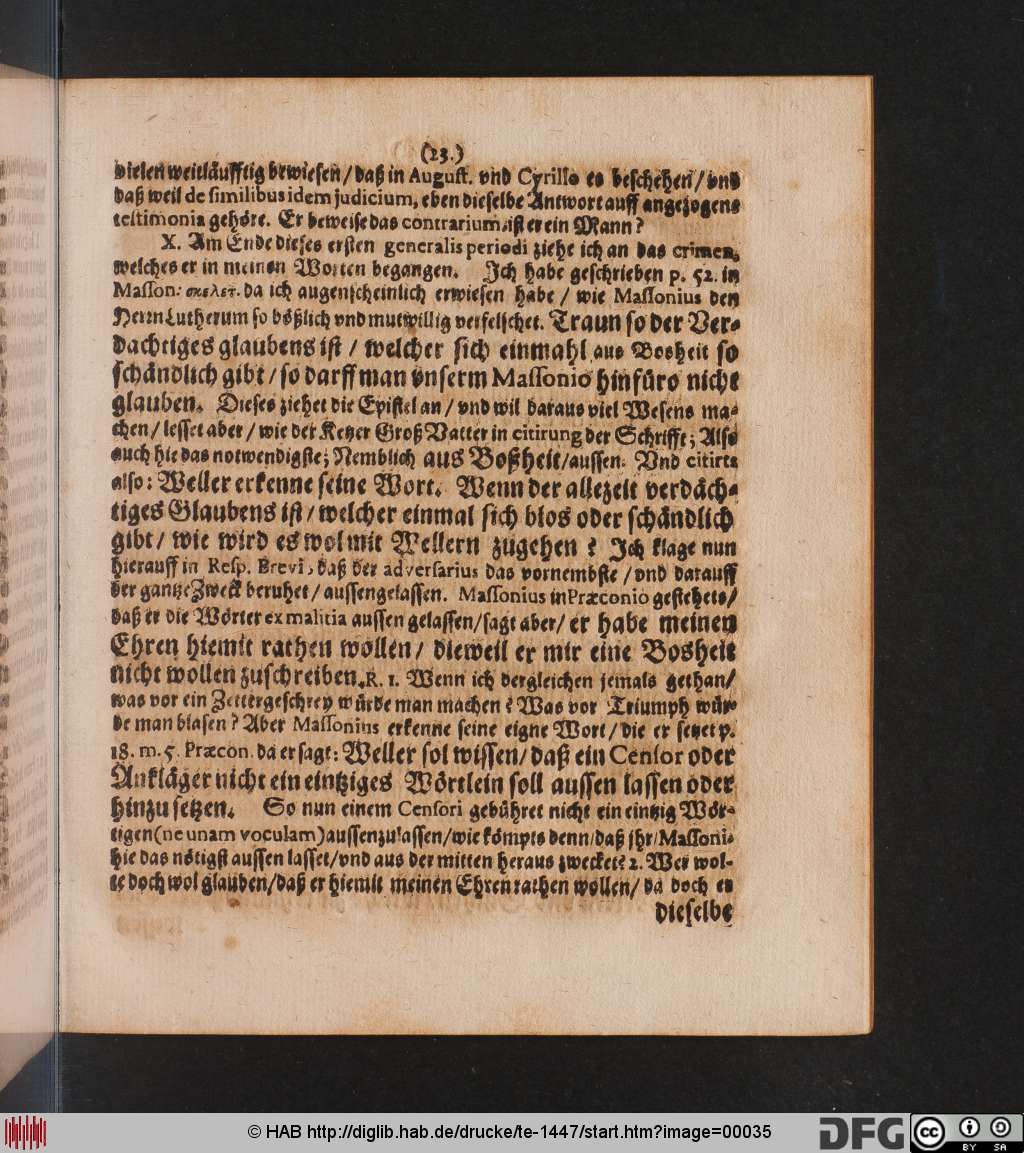 (23.)
vielen weitläufftig bewiesen/ daß in August. vnd Cyrillo es beschehen/ vnd
daß weil de similibus idem judicium, eben dieselbe Antwort auff angezogene
testimonia gehöre. Er beweise das contrarium, ist er ein Mann?
X. Am Ende dieses ersten generalis periodi ziehe ich an das crimen,
welches er in meinen Worten begangen. Jch habe geschrieben p. 52. in
Masson: σκελετ. da ich augenscheinlich erwiesen habe / wie Massonius den
Herrn Lutherum so bößlich vnd mutwillig verfelschet. Traun so der Ver-
dachtiges glaubens ist / welcher sich einmahl aus Bosheit so
schändlich gibt / so darff man vnserm Massonio hinfüro nicht
glauben. Dieses ziehet die Epistel an / vnd wil daraus viel Wesens ma-
chen / lesset aber / wie der Ketzer Groß Vatter in citirung der Schrifft; Also
auch hie das notwendigste; Nemblich aus Boßheit/aussen. Vnd citirts
also: Weller erkenne seine Wort. Wenn der allezeit verdäch-
tiges Glaubens ist / welcher einmal sich blos oder schändlich
gibt / wie wird es wol mit Wellern zugehen? Jch klage nun
hierauff in Resp. Brevi, daß der adversarius das vornembste / vnd darauff
der gantze Zweck beruhet / aussengelassen. Massonius in Præconio gestehets/
daß er die Wörter ex malitia aussen gelassen / sagt aber / er habe meinen
Ehren hiemit rathen wollen / dieweil er mir eine Bosheit
nicht wollen zuschreiben. R. 1. Wenn ich dergleichen jemals gethan/
was vor ein Zettergeschrey würde man machen? Was vor Triumph wür-
de man blasen? Aber Massonius erkenne seine eigne Wort / die er setzet p.
18. m. 5. Præcon. da er sagt: Weller sol wissen / daß ein Censor oder
Ankläger nicht ein eintziges Wörtlein soll aussen lassen oder
hinzu setzen. So nun einem Censori gebühret nicht ein eintzig Wör-
tigen (ne unam voculam) aussenzulassen / wie kömpts denn / daß jhr / Massoni,
hie das nötigst aussen lasset / vnd aus der mitten heraus zwecket? 2. Wer wol-
te doch wol glauben / daß er hiemit meinen Ehren rathen wollen / da doch er
dieselbe
© HAB http://diglib.hab.de/drucke/te-1447/start.htm?image=00035
DFG
cc
BY SA